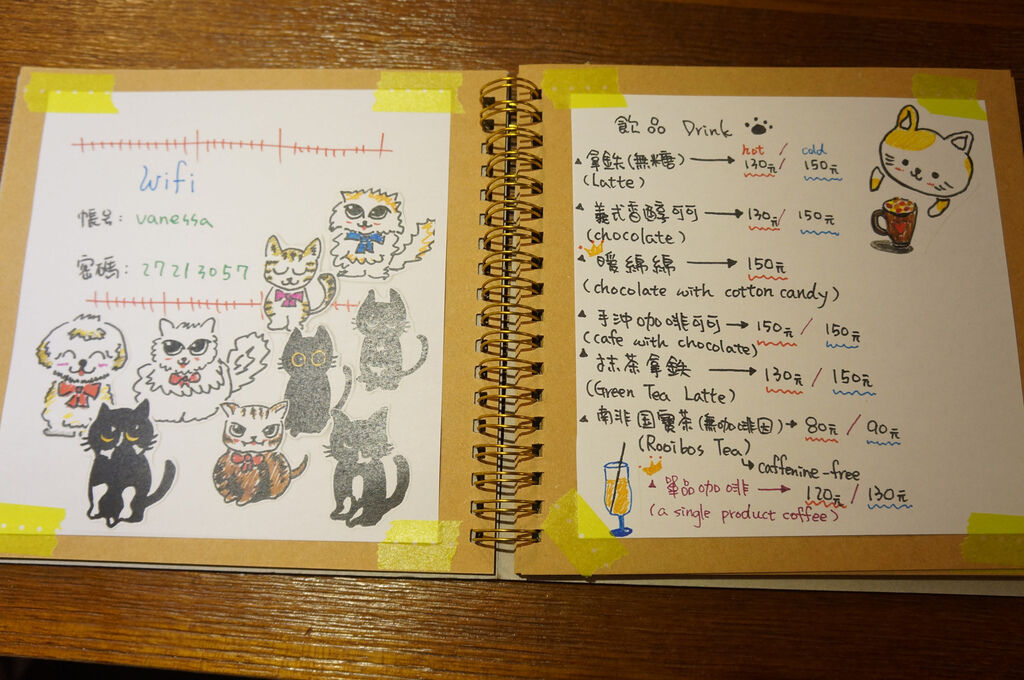 Wifi
帳号: vanessa
密碼: 27213057
飲品 Drink
hot / cold
▲ 拿鉄(無糖) → 130元 / 150元
(Latte)
▲ 義式香醇可可 → 130元 / 150元
(chocolate)
▲ 暖綿綿 → 150元
(chocolate with cotton candy)
▲ 手沖咖啡可可 → 150元 / 150元
(cafe with chocolate)
▲ 抹茶拿鉄 → 130元 / 150元
(Green Tea Latte)
▲ 南非国寶茶(無咖啡因) → 80元 / 90元
(Rooibos Tea)
↳ caffenine-free
▲ 單品咖啡 → 120元 / 130元
(a single product coffee)